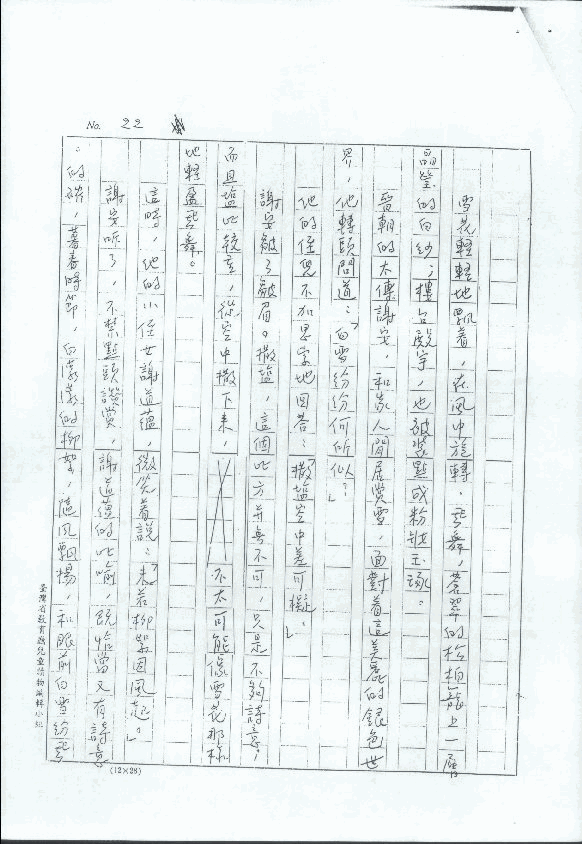 No. 22
雪花輕輕地飄着，在風中旋轉、飛舞，蒼翠的松柏籠上一層
晶瑩的白紗；樓台殿宇，也被裝點成粉粧玉琢。
晉朝的太傅謝安，和家人閒居賞雪，面對着這美麗的銀色世
界，他轉頭問道：「白雪紛紛何所似？」
他的侄兒不加思索地回答：「撒塩空中差可擬。」
謝安皺了皺眉。撒塩，這個比方并無不可，只是不夠詩意；
而且塩比較重，從空中撒下來，不太可能像雪花那樣
地輕盈飛舞。
這時，他的小侄女謝道蘊，微笑着說：「未若柳絮因風起。」
謝安听了，不禁點頭讚賞，謝道蘊的比喻，既恰當又有詩意
的確，暮春時節，白濛濛的柳絮，隨風飄揚，和眼前白雪紛飛
臺灣省教育廳兒童讀物編輯小組
(12×25)